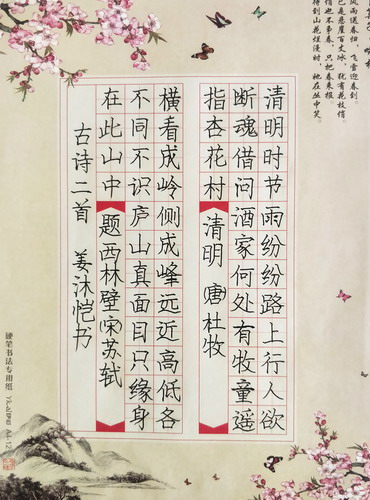 风雨送春归，飞雪迎春到。
已是悬崖百丈冰，犹有花枝俏。
俏也不争春，只把春来报。
待到山花烂漫时，她在丛中笑。
清明时节雨纷纷路上行人欲
断魂借问酒家何处有牧童遥
指杏花村 清明 (唐)杜牧
横看成岭侧成峰远近高低各
不同不识庐山真面目只缘身
在此山中 题西林壁(宋)苏轼
古诗二首 姜沐恺书
硬笔书法专用纸